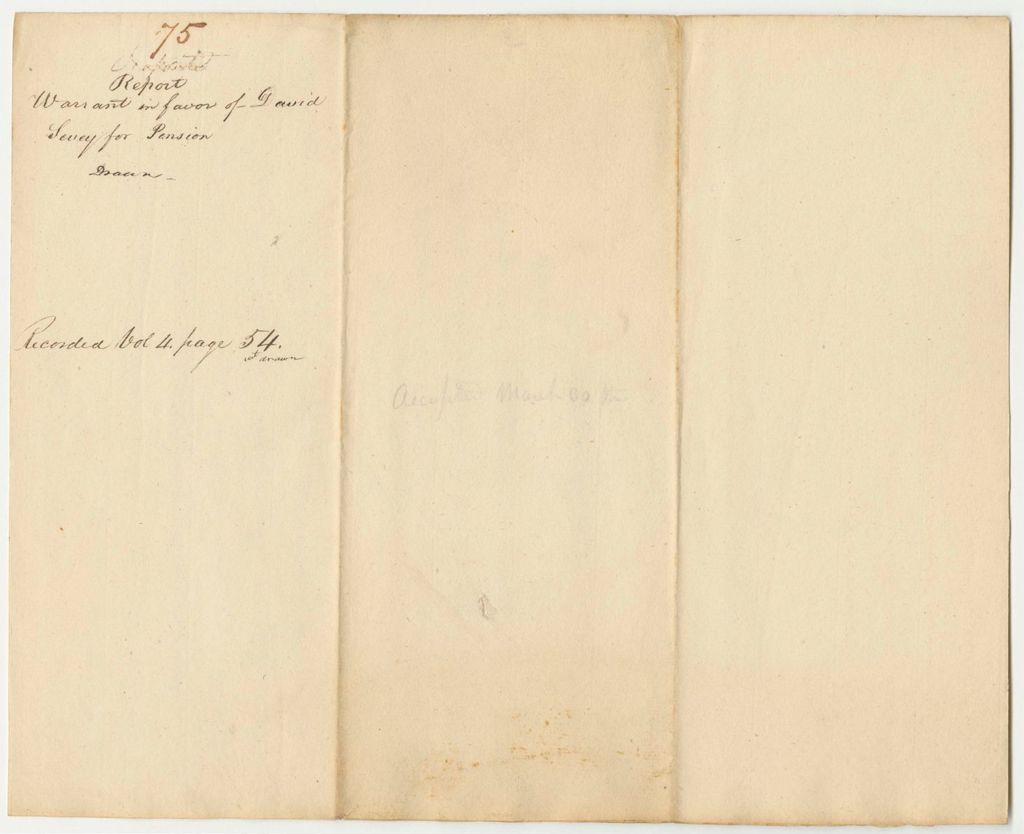 75
Report
Warrant in favor of David
Sevey for Pension
Drawn
Recorded Vol 4. page 54.
wt drawn
Accepted March 30